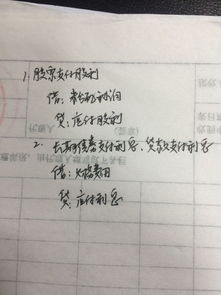 1. 股票支付股利
借：未分配利润
贷：应付股利
2. 长期借款支付利息、贷款支付利息
借：财务费用
贷：应付利息